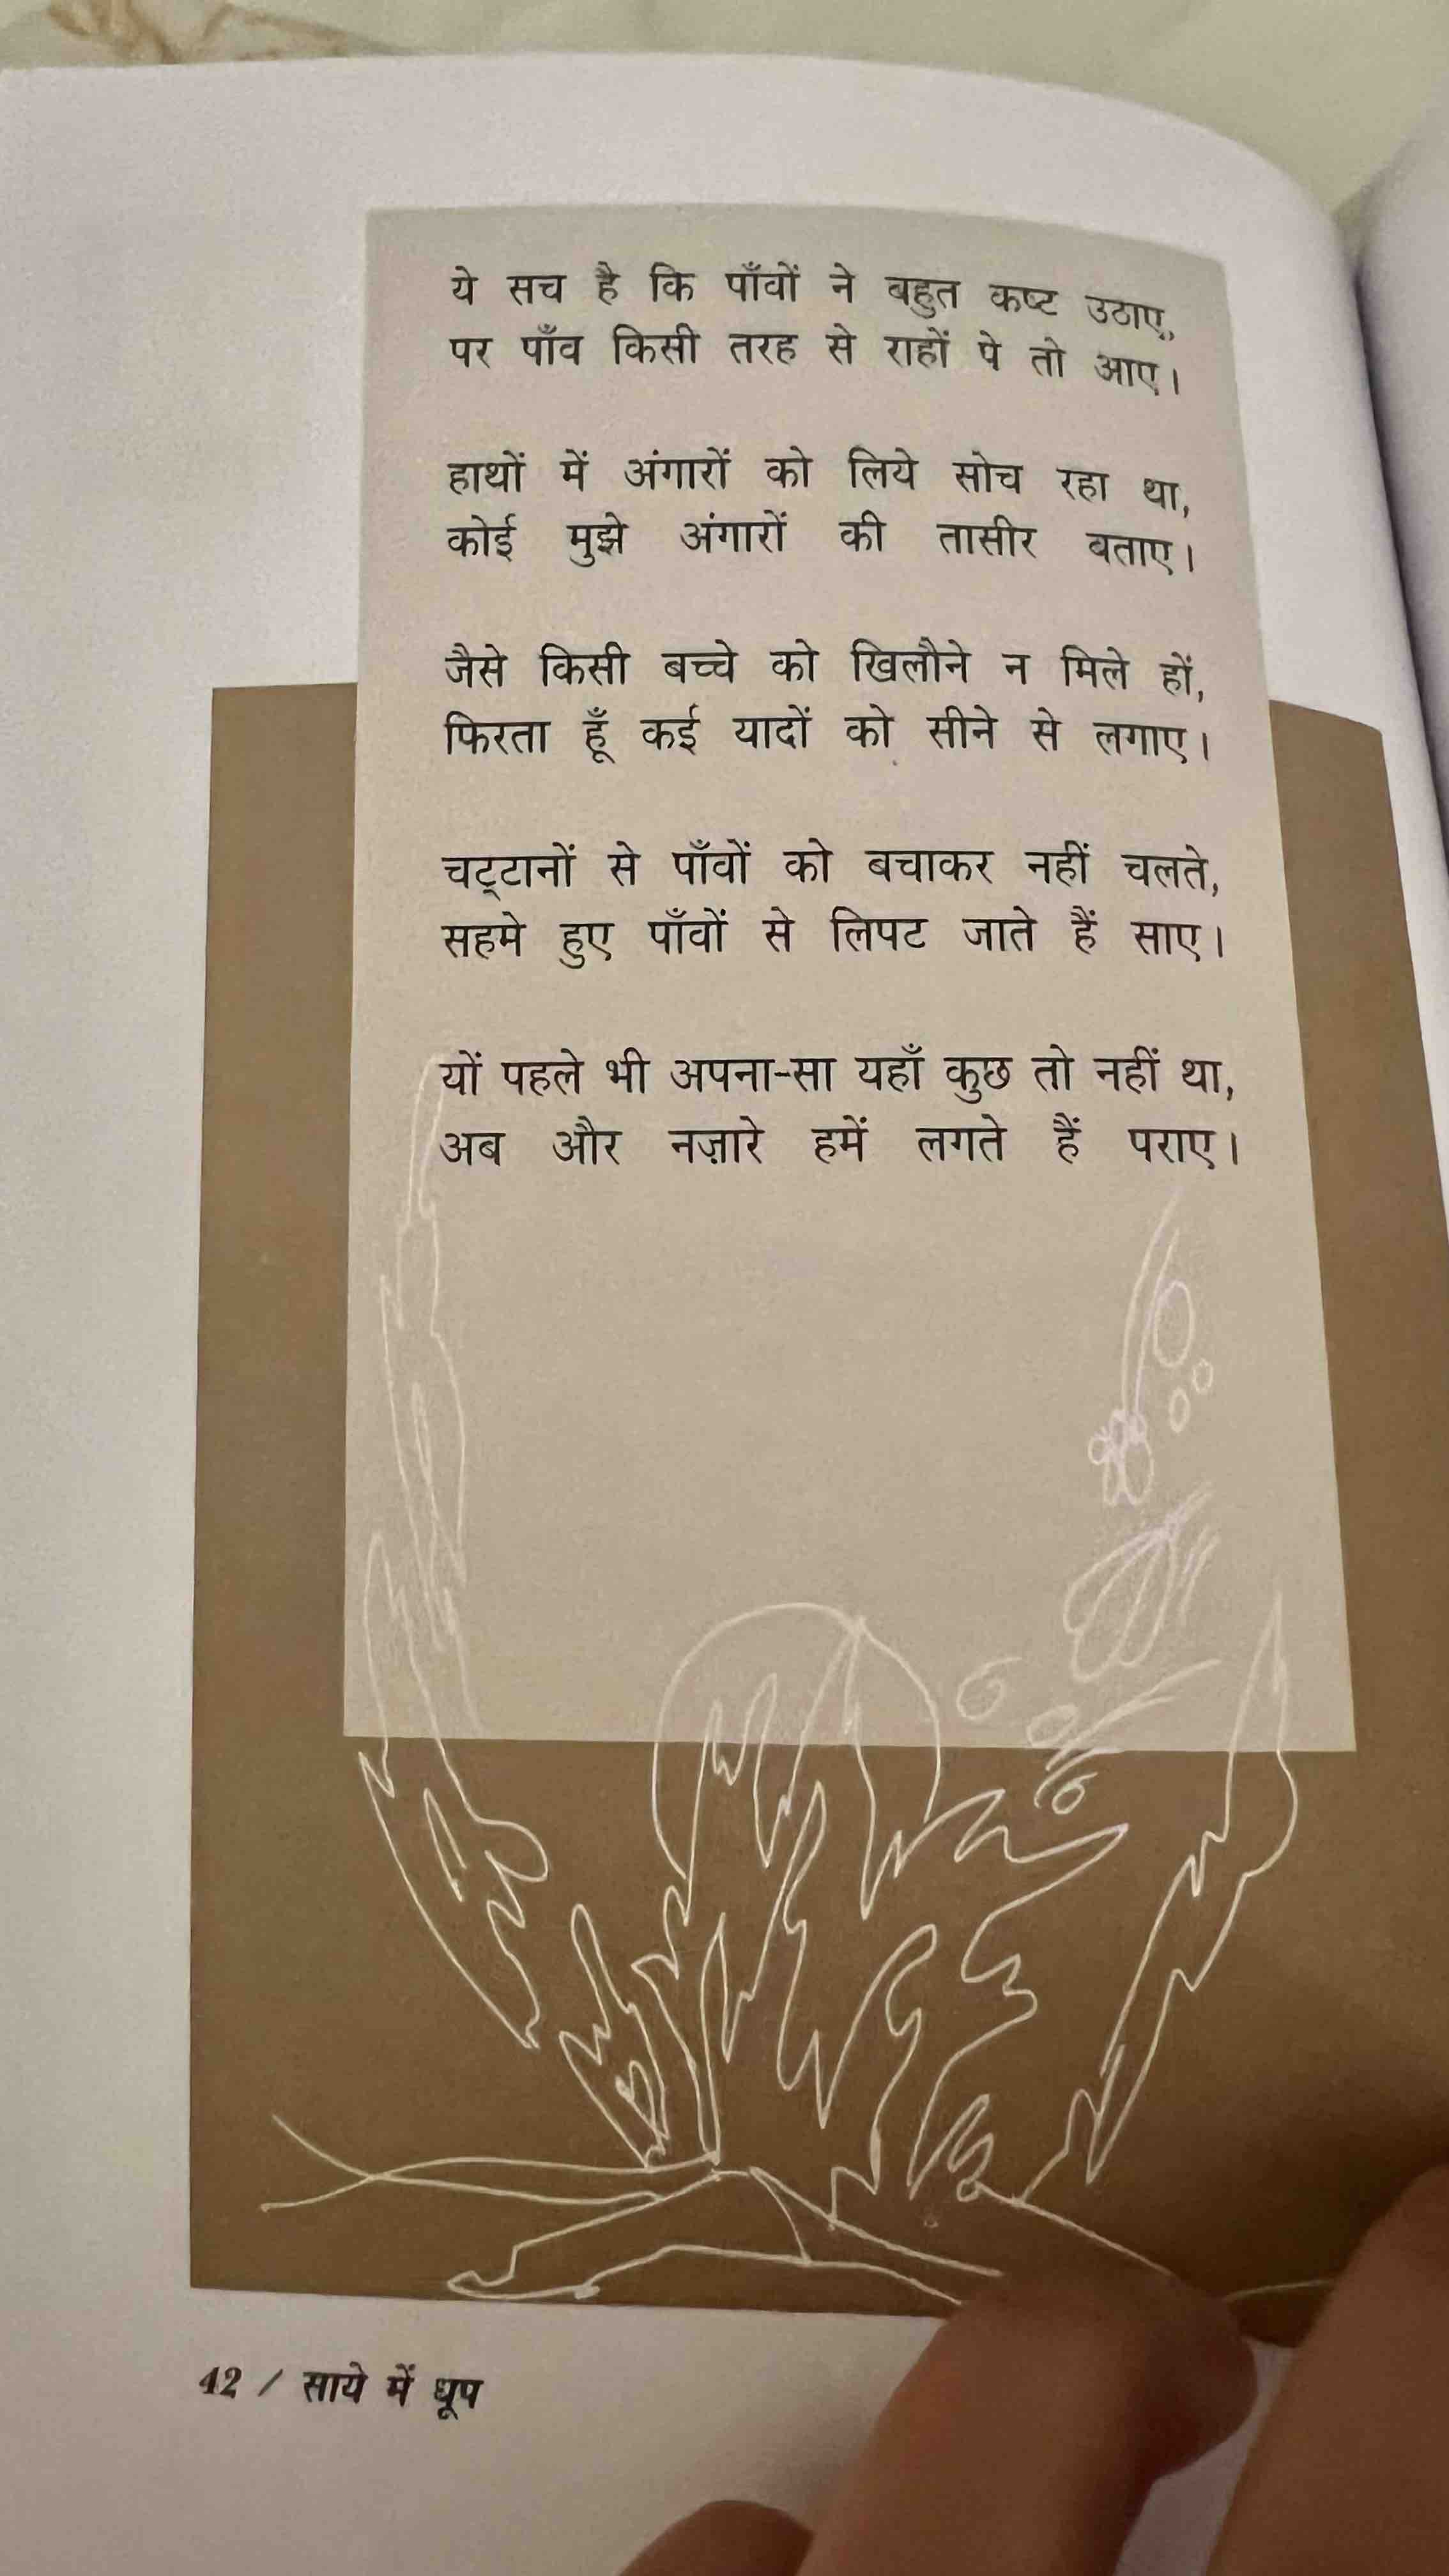 ये सच है कि पाँवों ने बहुत कष्ट उठाए,
पर पाँव किसी तरह से राहों पे तो आए।
हाथों में अंगारों को लिये सोच रहा था,
कोई मुझे अंगारों की तासीर बताए।
जैसे किसी बच्चे को खिलौने न मिले हों,
फिरता हूँ कई यादों को सीने से लगाए।
चट्टानों से पाँवों को बचाकर नहीं चलते,
सहमे हुए पाँवों से लिपट जाते हैं साए।
यों पहले भी अपना-सा यहाँ कुछ तो नहीं था,
अब और नज़ारे हमें लगते हैं पराए।
42 / साये में धूप